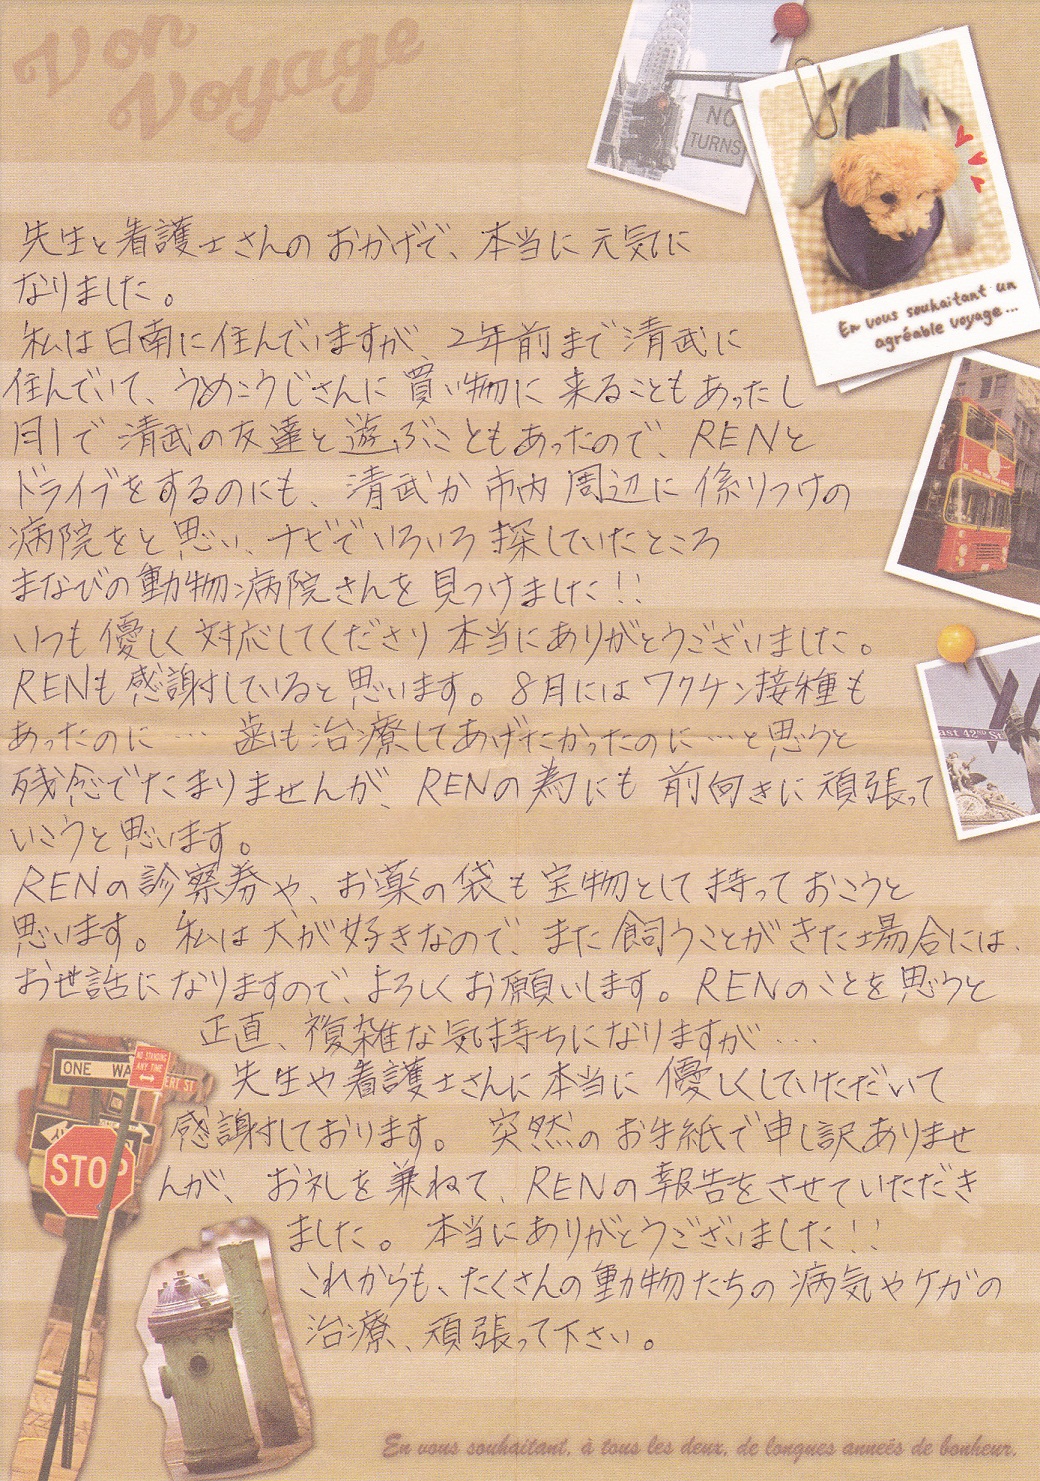 Von
Voyage
NO
TURNS
En vous souhaitant un
agréable voyage...
先生と看護士さんのおかげで、本当に元気に
なりました。
私は日南に住んでいますが、2年前まで清武に
住んでいて、うめこうじさんに買い物に来ることもあったし
月1で清武の友達と遊ぶこともあったので、RENと
ドライブをするのにも、清武か市内周辺に係りつけの
病院をと思い、ナビでいろいろ探していたところ
まなびの動物病院さんを見つけました!!
いつも優しく対応してくださり本当にありがとうございました。
RENも感謝していると思います。8月にはワクチン接種も
あったのに… 歯も治療してあげたかったのに…と思うと
残念でたまりませんが、RENの為にも前向きに頑張って
いこうと思います。
RENの診察券や、お薬の袋も宝物として持っておこうと
思います。私は犬が好きなので、また飼うことがきた場合には、
お世話になりますので、よろしくお願いします。RENのことを思うと
正直、複雑な気持ちになりますが…
先生や看護士さんに本当に優しくしていただいて
感謝しております。突然のお手紙で申し訳ありませ
んが、お礼を兼ねて、RENの報告をさせていただき
ました。本当にありがとうございました!!
これからも、たくさんの動物たちの病気やケガの
治療、頑張って下さい。
East 42ND St
ONE WA
NO STANDING
ANY TIME
ERT ST
STOP
En vous souhaitant, à tous les deux, de longues anneés de bonheur.